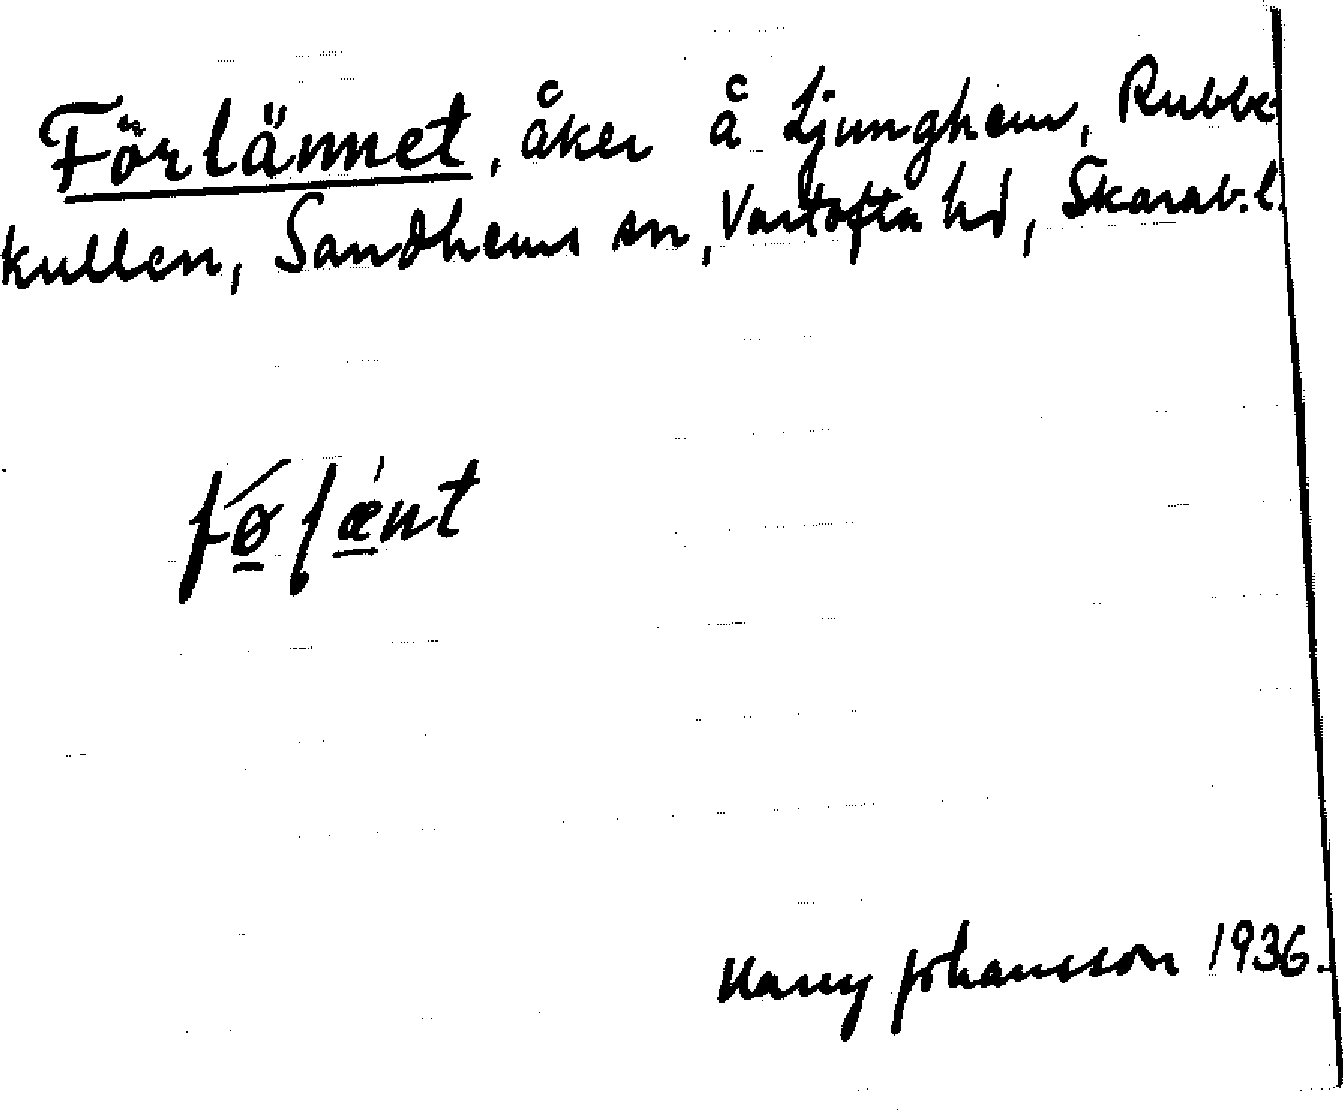 Förlännet, åker å Ljunghem, Rubbe-
kullen, Sandhems sn, Vartofta hd, Skarab. l.
føʃænt
Harry Johansson 1936.